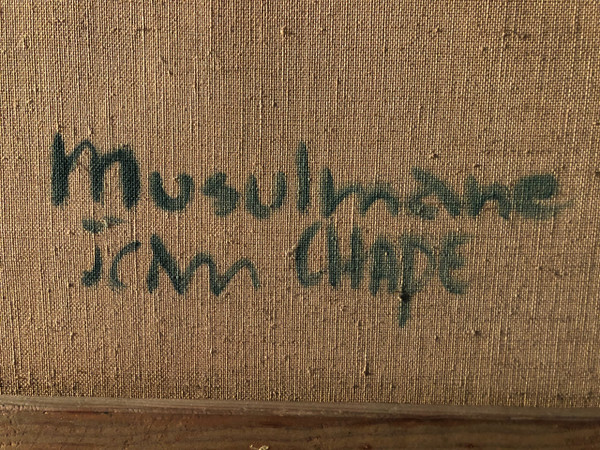 Musulmane
jean CHAPE